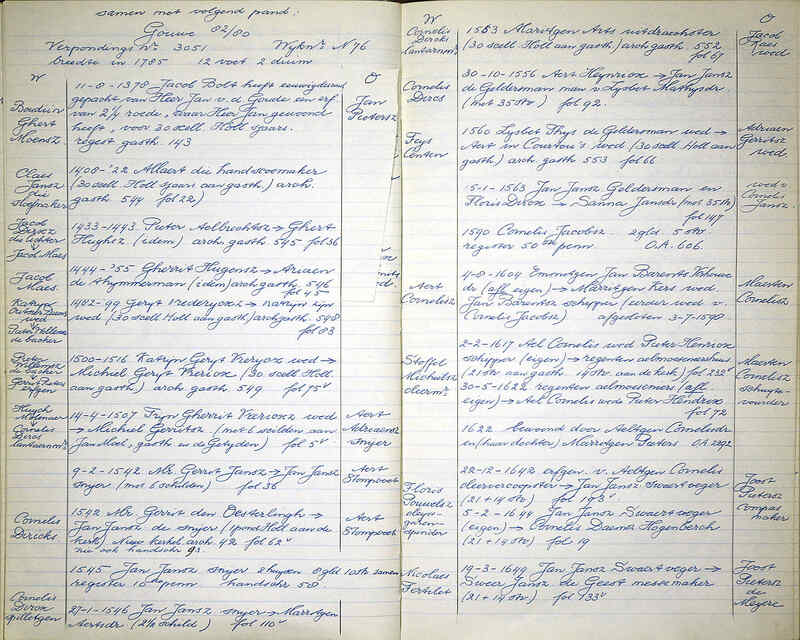 samen met volgend pand:
Gouwe 82/80
Verpondings No 3051 Wijknr N 76
breedte in 1785 12 voet 2 duim
W
O
Boudwin
Ghert
Moensz
11-8-1378 Jacob Bolt heeft eeuwigdurend
gepacht van Heer Jan v. d. Goude een erf
van 2½ roede, waar Heer Jan gewoond
heeft, voor 30 scell. Holl. jaars.
regest gasth. 143
Jan
Pietersz
Claes
Jansz
die
Hofmaker
1408-'22 Allaert die handscoemaker
(30 scell. Holl jaars aan gasth.) arch.
gasth 544 fol 22)
Jacob
Dircsz
die luchter
Jacob Maes
1433-1443. Pieter Aelbrechtsz → Ghert
Hughsz (idem) arch. gasth. 545 fol 36
Jacob
Maes.
1444-'55 Gherrit Hugensz → Ariaen
de Thymmerman (idem) arch gasth. 546
fol 45
Katryn
wed
Pieter Willemsz
de backer
1482-99 Geryt Vrederycxz → Katryn zijn
wed (30 scell Holl aan gasth) arch gasth. 548
fol 83
Pieter
Willemsz
de backer
Gerrit Pieters
erfgen
1500-1516 Katryn Geryt Vierycx wed →
Michiel Geryt Vriericx (30 scell Holl.
aan gasth) arch gasth 549 fol 75v
Huych
Molenaer
Cornelis
Dircs
lantaernmr.
14-4-1507 Tryn Gherrit Vrericxz wed
→ Michiel Gerritsz (met 6 scilden aan
Jan Moel, gasth en de Getyden) fol 5v
Aert
Adriaensz
snyer
9-2-1542. Mr. Gerrit Jansz → Jan Jansz
snyer (met 6 schilden) fol 36
Aert
Stompvoet
Cornelis
Diricks
1542 Mr. Gerrit den Oesterlingh →
Jan Jansz de snyer (1 pond Holl aan de
kerk) Nieuw kerkel arch. 42 fol 62v
zie ook handschr 93.
Aert
Stompvoet
1545 Jan Jansz snyer 2 huysen 8 gld 10 str. samen
register 10de penn handschr 58
Cornelis
Dircx
spillotgen
27-1-1546 Jan Jansz snyer → Marritgen
Aertsdr (2½ schild) fol 110v
W
O
Cornelis
Dircks
lantaarnmr.
1553 Maritgen Arts uitdraechster
(30 scell Holl aan gasth.) arch gasth. 552
fol 67
Jacob
Kaes
wed
Cornelis
Dircs
30-10-1556 Aert Heynricx → Jan Jansz
de Geldersman man v Lysbet Mathysdr.
(met 35 str) fol 92.
Feys
Centen
1560 Lysbet Thys de Geldersman wed →
Aert in Courtou's wed (30 scell Holl aan
gasth.) arch gasth 553 fol 66
Adriaen
Gerritsz
wed.
15-1-1563 Jan Jansz Geldersman en
Floris Dircx → Sanna Jansdr (met 35 str)
fol 147
wed v
Cornelis
Jansz.
1590 Cornelis Jacobsz. 2 gld. 5 str.
register 50ste penn. O.A. 606.
Aert
Cornelisz
4-8-1604 Emontgen Jan Barents
dr (afl. eigen) → Marritgen Kers wed.
Jan Barentsz schipper (eerder wed v.
Cornelis Jacobsz) afgedaen 3-7-1598
Maerten
Cornelisz
Stoffel
Michielsz
oliermr.
2-2-1617 Ael Cornelis wed Pieter Henricx
schipper (eigen) → regenten aelmoesenershuis
(21 str aan gasth 14 str aan de kerk) fol 232v
30-5-1622 regenten aelmoeseniers (afl.
eigen) → Ael Cornelis wed Pieter Hendricx
fol 72
Maerten
Cornelisz
schuyte-
voerder
1622 bewoond door Aeltgen Cornelisdr
en (haar dochter) Marritgen Pieters O.A. 2292
Floris
Pouwelsz
cleyn-
garen-
spinder
22-12-1642 erfgen. v. Aeltgen Cornelis
cleercoopster → Jan Jansz Swaertveger
(21 + 14 str) fol 198v.
5-2-1644 Jan Jansz Swaertveger
(eigen) → Cornelis Daenen Hogenberch
(21 + 14 str) fol 19
Joost
Pietersz
compas
maker
Nicolaes
Fertilet
19-3-1649 Jan Jansz Swaertveger →
Sweer Jansz de Geest messemaker
(21 + 14 str) fol 133v
Joost
Pietersz
de
Meyere